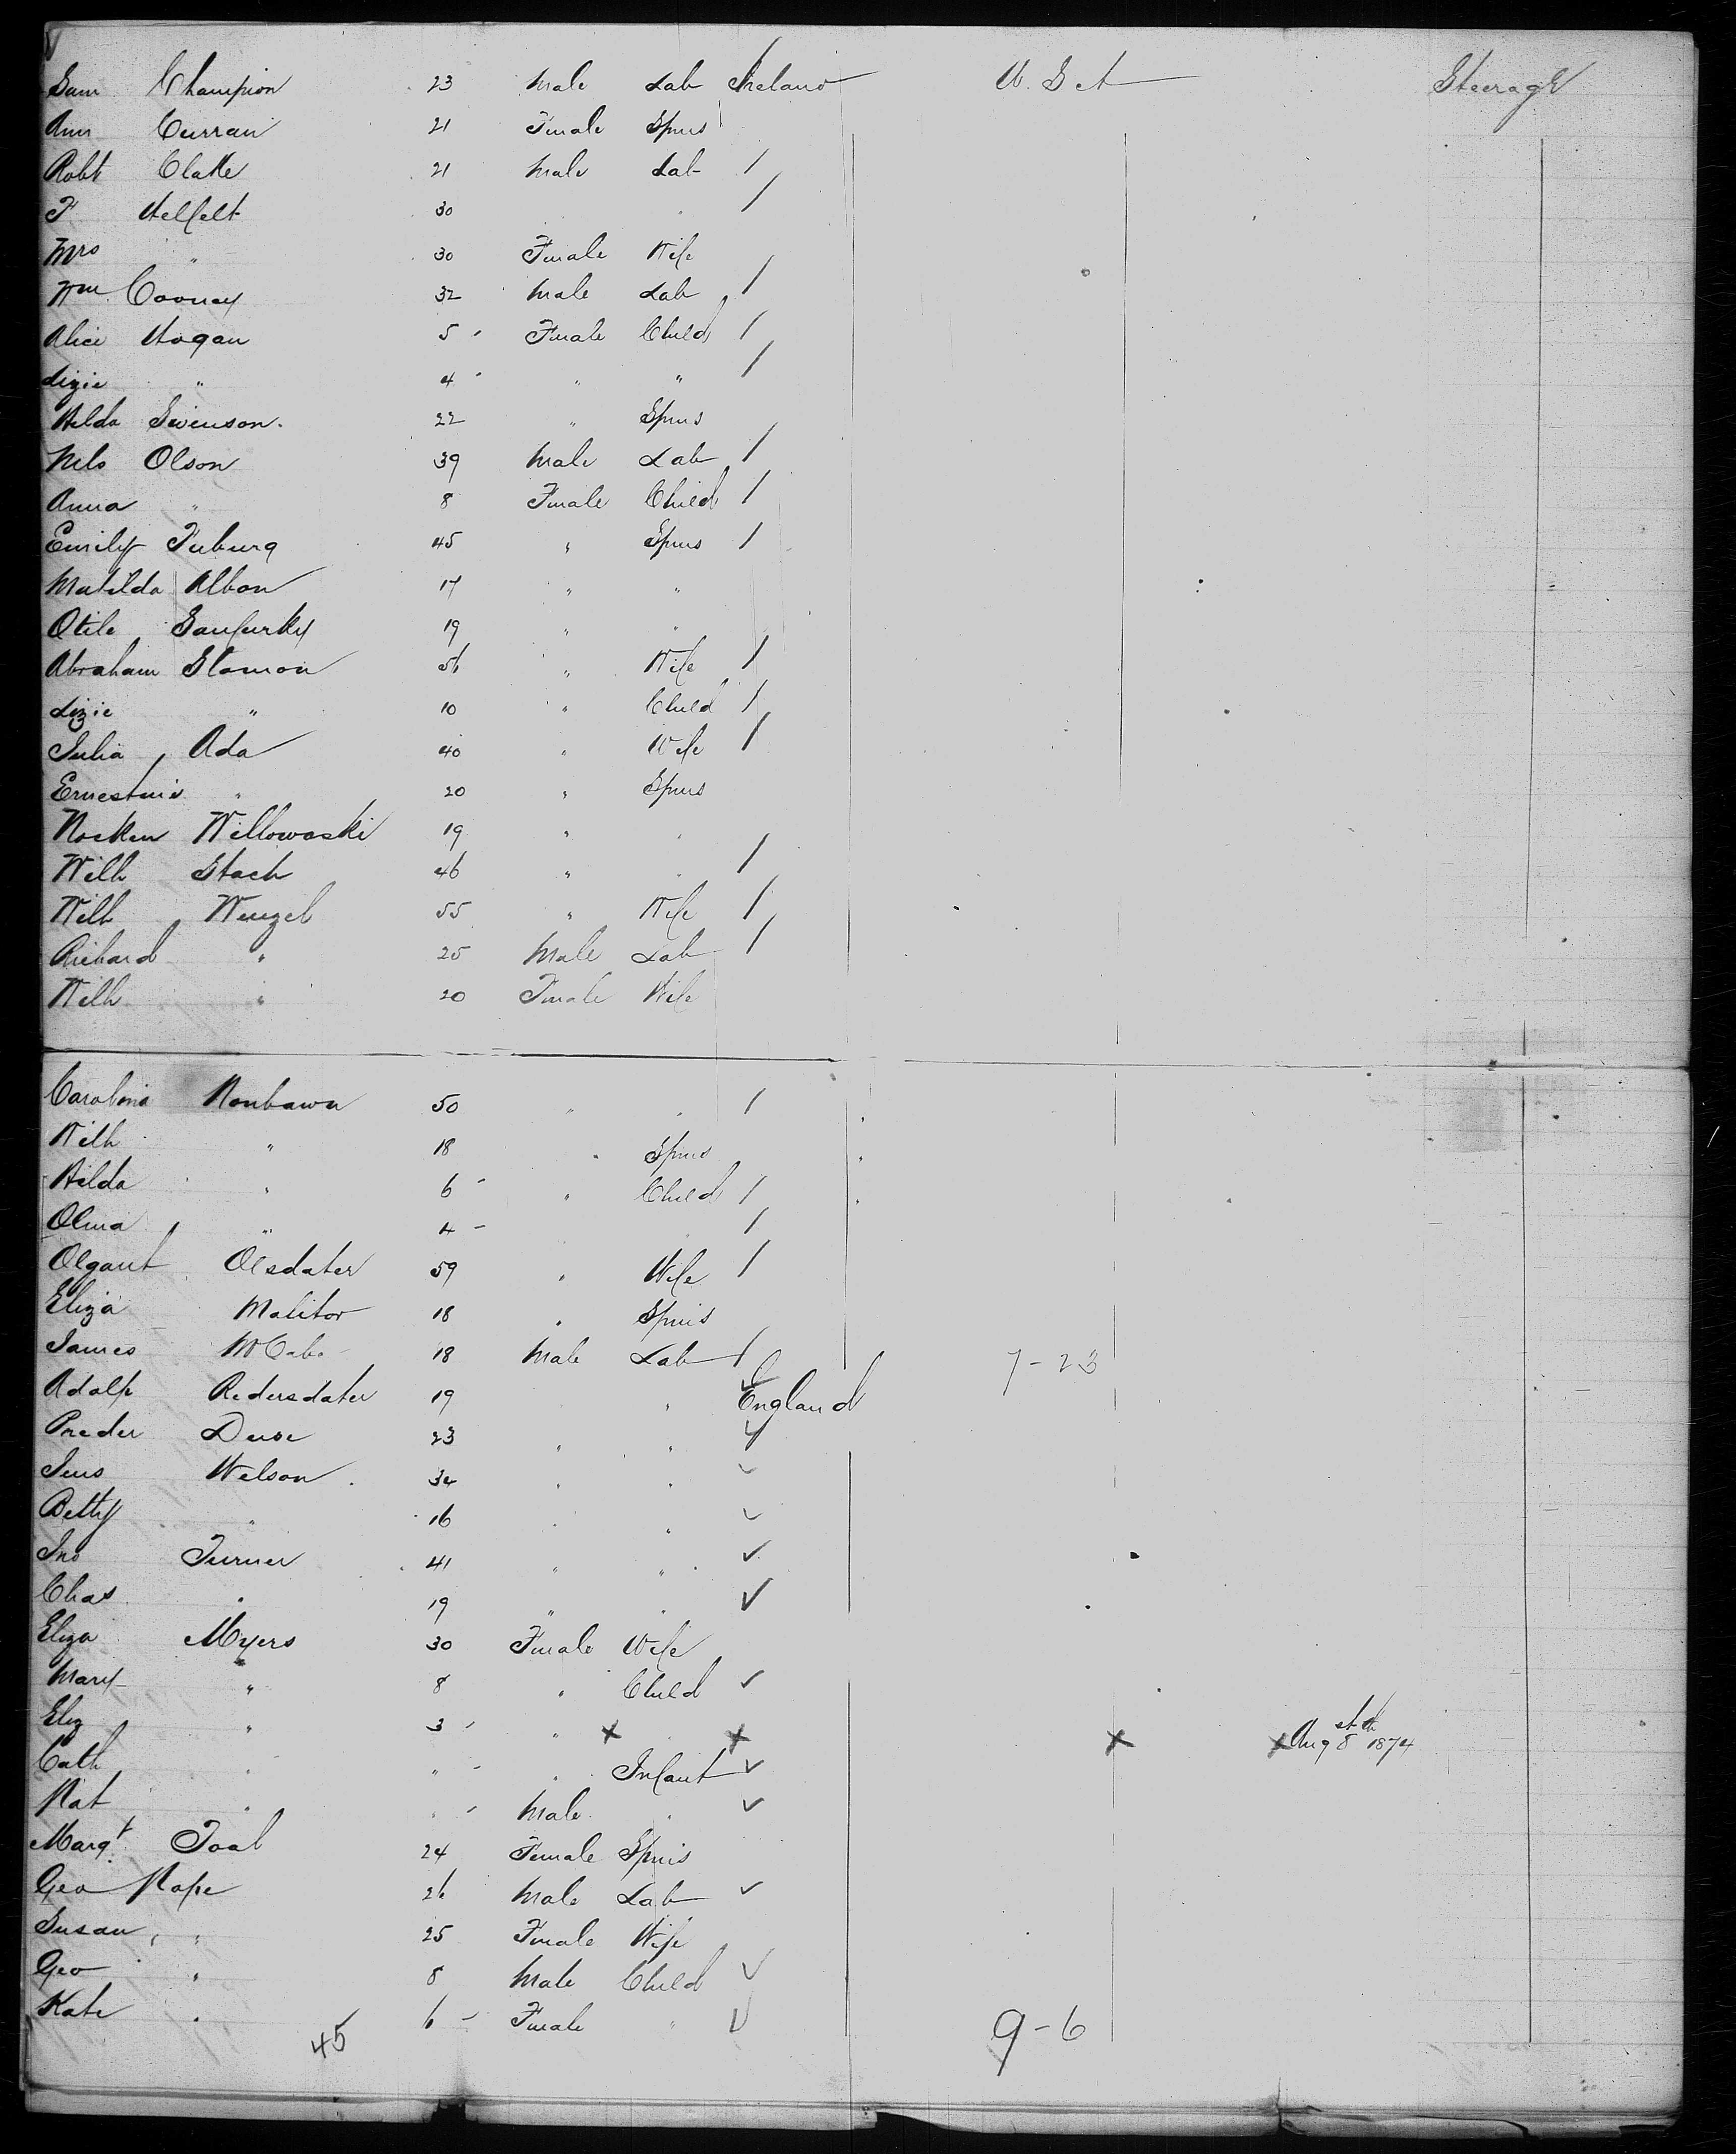 Sam Champion 23 Male Lab Ireland U.S.A Steerage
Ann Curran 21 Female Spins
Robt Clake 21 Male Lab
F Helfelt 30 " "
Mrs " 30 Female Wife
Wm Cooney 32 Male Lab
Alice Hogan 5 Female Child
Lizie " 4 " "
Hilda Swenson. 22 " Spins
Nels Olson 39 Male Lab
Anna " 8 Female Child
Emily Fuburg 45 " Spins
Matilda Albon 17 " "
Otile 19 " "
Abraham Slomon 56 " Wife
Lizie " 10 " Child
Julia Ada 40 " Wife
Ernestine " 20 " Spins
Willowaski 19 " "
Wilh Stach 46 " "
Wilh Wenzel 55 " Wife
Richard " 25 Male Lab
Wilh " 20 Female Wife
Carolina 50 " "
Wilh " 18 " Spins
Hilda " 6 " Child
Olma " 4 "
Olgant Olsdater 59 " Wife
Eliza Malitor 18 " Spins
James McCabe 18 Male Lab 7-23
Adolf Redersdater 19 " " England
Preder 23 " "
Jens Welson 34 " "
Betty " 16 " "
Jno Turner 41 " "
Chas " 19 " "
Eliza Myers 30 Female Wife
Mary " 8 " Child
Eliz " 3 " x x x x Aug 8 1874
Cath " " " Infant
Nat " " Male "
Margt Toal 24 Female Spins
Geo Pope 26 Male Lab
Susan " 25 Female Wife
Geo " 8 Male Child
Kate " 6 Female "
45 9-6